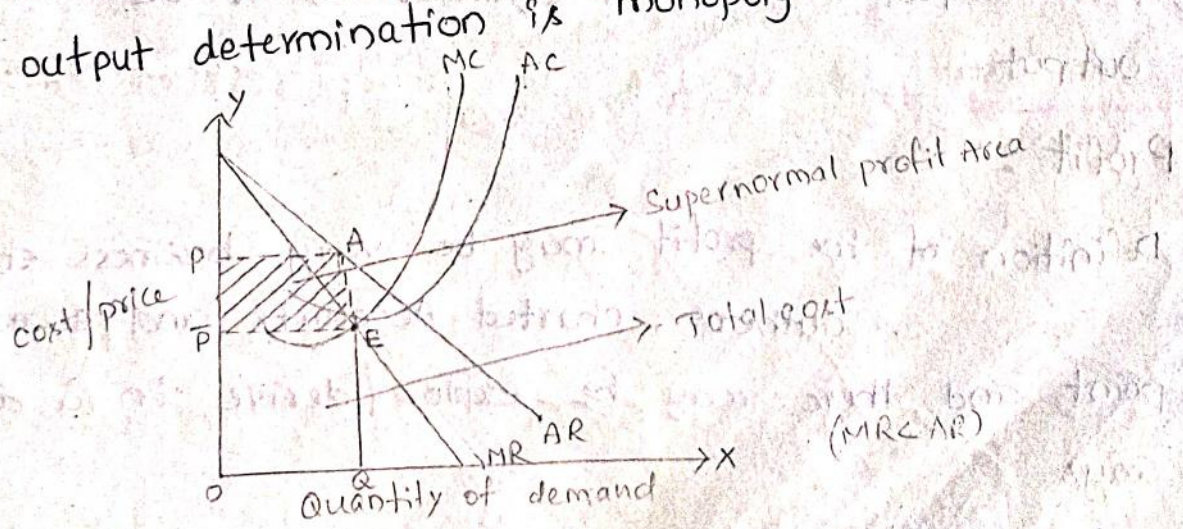 output determination is monopoly
MC AC
Y
Supernormal profit Area
A
P
cost/price
P̅
E
Total cost
AR
(MR<AR)
MR
X
O
Q
Quantity of demand